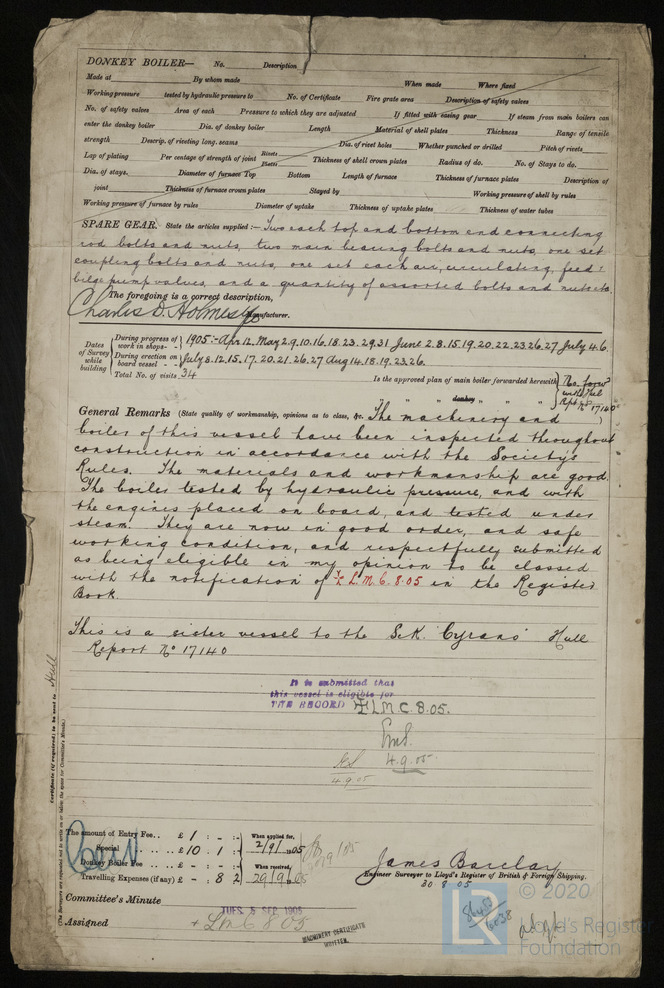 DONKEY BOILER— No. Description
Made at By whom made When made Where fixed
Working pressure tested by hydraulic pressure to No. of Certificate Fire grate area Description of safety valves
No. of safety valves Area of each Pressure to which they are adjusted If fitted with easing gear If steam from main boilers can
enter the donkey boiler Dia. of donkey boiler Length Material of shell plates Thickness Range of tensile
strength Descrip. of riveting long. seams Dia. of rivet holes Whether punched or drilled Pitch of rivets
Lap of plating Per centage of strength of joint Rivets Plates Thickness of shell crown plates Radius of do. No. of Stays to do.
Dia. of stays. Diameter of furnace Top Bottom Length of furnace Thickness of furnace plates Description of
joint Thickness of furnace crown plates Stayed by Working pressure of shell by rules
Working pressure of furnace by rules Diameter of uptake Thickness of uptake plates Thickness of water tubes
SPARE GEAR. State the articles supplied:— Two each top and bottom end connecting
rod bolts and nuts, two main bearing bolts and nuts, one set
coupling bolts and nuts, one set each air, circulating, feed &
bilge pump valves, and a quantity of assorted bolts and nuts etc.
The foregoing is a correct description,
Charles D. Holmes & Co Manufacturer.
Dates of Survey while building
During progress of work in shops - - 1905:- Apr 12, May 2.9.10.16.18.23.29.31 June 2.8.15.19.20.22.23.26.27 July 4.6.
During erection on board vessel - - July 8.12.15.17.20.21.26.27 Aug 14.18.19.23.26.
Total No. of visits 34
Is the approved plan of main boiler forwarded herewith No. forw with Hul Rpt No 17140
" " " donkey " " "
General Remarks (State quality of workmanship, opinions as to class, &c. The machinery and
boiler of this vessel have been inspected throughout
construction in accordance with the Society's
Rules. The materials and workmanship are good.
The boiler tested by hydraulic pressure, and with
the engines placed on board, and tested under
steam. They are now in good order, and safe
working condition, and respectfully submitted
as being eligible in my opinion to be classed
with the notification of + L.M.C. 8.05 in the Register
Book.
This is a sister vessel to the S.K. "Cyrano" Hull
Report No 17140
It is submitted that
this vessel is eligible for
THE RECORD + LMC 8.05.
4.9.05
4.9.05
Certificate (if required) to be sent to Hull
(The Surveyors are requested not to write on or below the space for Committee's Minute.)
The amount of Entry Fee . . £ 1 : - : When applied for,
Special . . £ 10 . 1 : 2/9/1905
Donkey Boiler Fee . . £ - : - : When received,
Travelling Expenses (if any) £ - : 8 2 29/9/05
James Barclay
Engineer Surveyor to Lloyd's Register of British & Foreign Shipping.
30 8 05
Committee's Minute TUES. 5 SEP 1905
Assigned + LMC 8 05.
MACHINERY CERTIFICATE
WRITTEN.
LR
© 2020
Lloyd's Register
Foundation